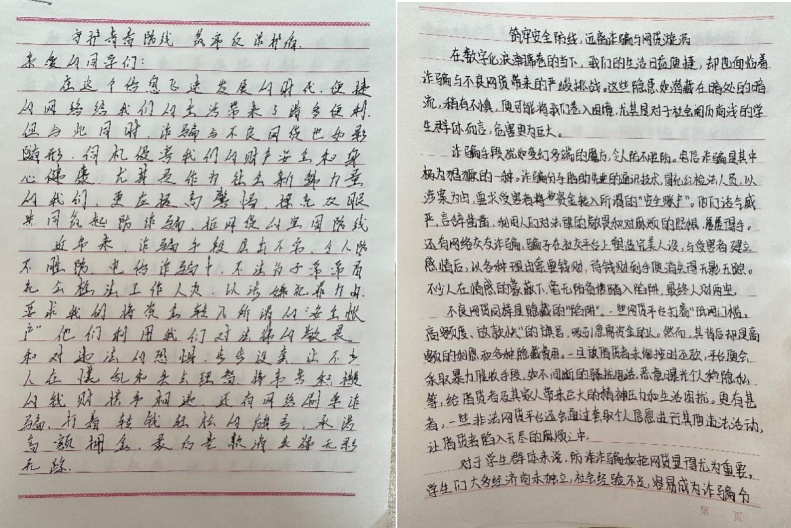 守护青春防线 筑牢反诈护盾
亲爱的同学们：
在这个信息飞速发展的时代，便捷
的网络给我们的生活带来了诸多便利，
但与此同时，诈骗与不良网贷也如影
随形，伺机侵害我们的财产安全和身
心健康。尤其是作为社会新兴力量
的我们，更应提高警惕，擦亮双眼
共同筑起防诈骗，拒网贷的坚固防线
近年来，诈骗手段层出不穷，令人防
不胜防。电信诈骗中，不法分子常常冒
充公检法工作人员，以涉嫌犯罪为由，
要求我们将资金转入所谓的“安全账
户”他们利用我们对法律的敬畏
和对违法的恐惧，步步设套，让不少
人在慌乱和失去理智将辛苦积攒
的钱财拱手相送，还有网络刷单诈
骗，打着轻松的旗号，承诺
高额佣金，最后卷款消失得无影
无踪。
筑牢安全防线，远离诈骗与网贷漩涡
在数字化浪潮席卷的当下，我们的生活日益便捷，却也面临着
诈骗与不良网贷带来的严峻挑战。这些隐患如潜藏在暗处的暗
流，稍有不慎，便可能将我们卷入困境，尤其是对于社会阅历尚浅的学
生群体而言，危害更为巨大。
诈骗手段犹如变幻多端的魔方，令人防不胜防。电信诈骗是其中
极为猖獗的一种，诈骗分子借助先进的通讯技术，冒充公检法人员，以
涉案为由，要求受害者将资金转入所谓的“安全账户”。他们语气威
严，言辞凿凿，利用人们对法律的敬畏和对麻烦的恐惧，屡屡得手。
还有网络交友诈骗，骗子在社交平台上塑造完美人设，与受害者建立
感情后，以各种理由索要钱财，待钱财到手便消失得无影无踪。
不少人在情感的蒙蔽下，毫无防备地踏入陷阱，最终人财两空。
不良网贷同样是隐藏的“陷阱”。一些网贷平台打着“低门槛，
高额度，放款快”的旗号，吸引急需资金的人。然而，其背后却是高
额的利息和各种隐藏费用。一旦借贷者未能按时还款，平台便会
采取暴力催收手段，如不间断的骚扰电话，恶意曝光个人隐私
等，给借贷者及其家人带来巨大的精神压力和生活困扰。更有甚
者，一些非法网贷平台还会通过套取个人信息进行其他违法活动，
让借贷者陷入无尽的麻烦之中。
对于学生群体来说，防诈骗和拒网贷显得尤为重要。
学生们大多经济尚未独立，社会经验不足，容易成为诈骗分
第 页